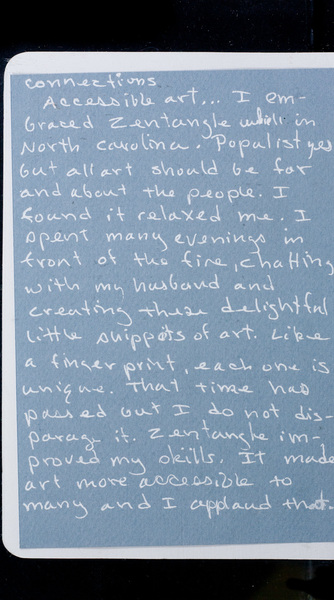 connections.
Accessible art... I em-
braced Zentangle while in
North Carolina. Populist yes
but all art should be for
and about the people. I
found it relaxed me. I
spent many evenings in
front of the fire, chatting
with my husband and
creating these delightful
little snippets of art. Like
a fingerprint, each one is
unique. That time has
passed but I do not dis-
parage it. Zentangle im-
proved my skills. It made
art more accessible to
many and I applaud that.